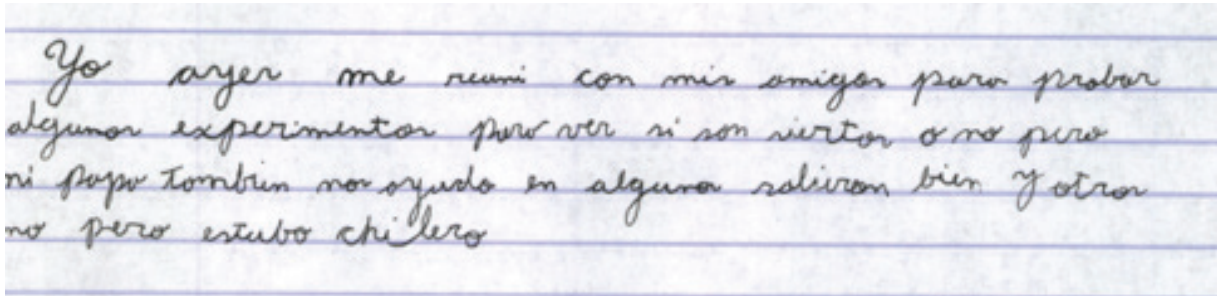 Yo ayer me reuni con mis amigos para probar
algunos experimentos para ver si son siertos o no pero
mi papa tambien nos ayudo en algunos salieron bien y otros
no pero estubo chilero